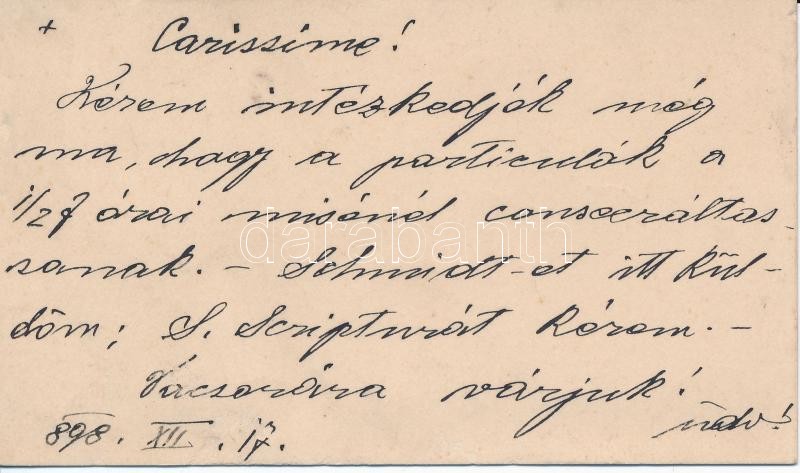 + Carissime!
Kérem intézkedjék még
ma, hogy a particulák a
1/2 7 órai misénél consecráltas-
sanak. – Schmidt-et itt kül-
döm; S. Scripturát kérem. –
Vacsorára várjuk!
üdv!
898. XII. 17.
darabanth